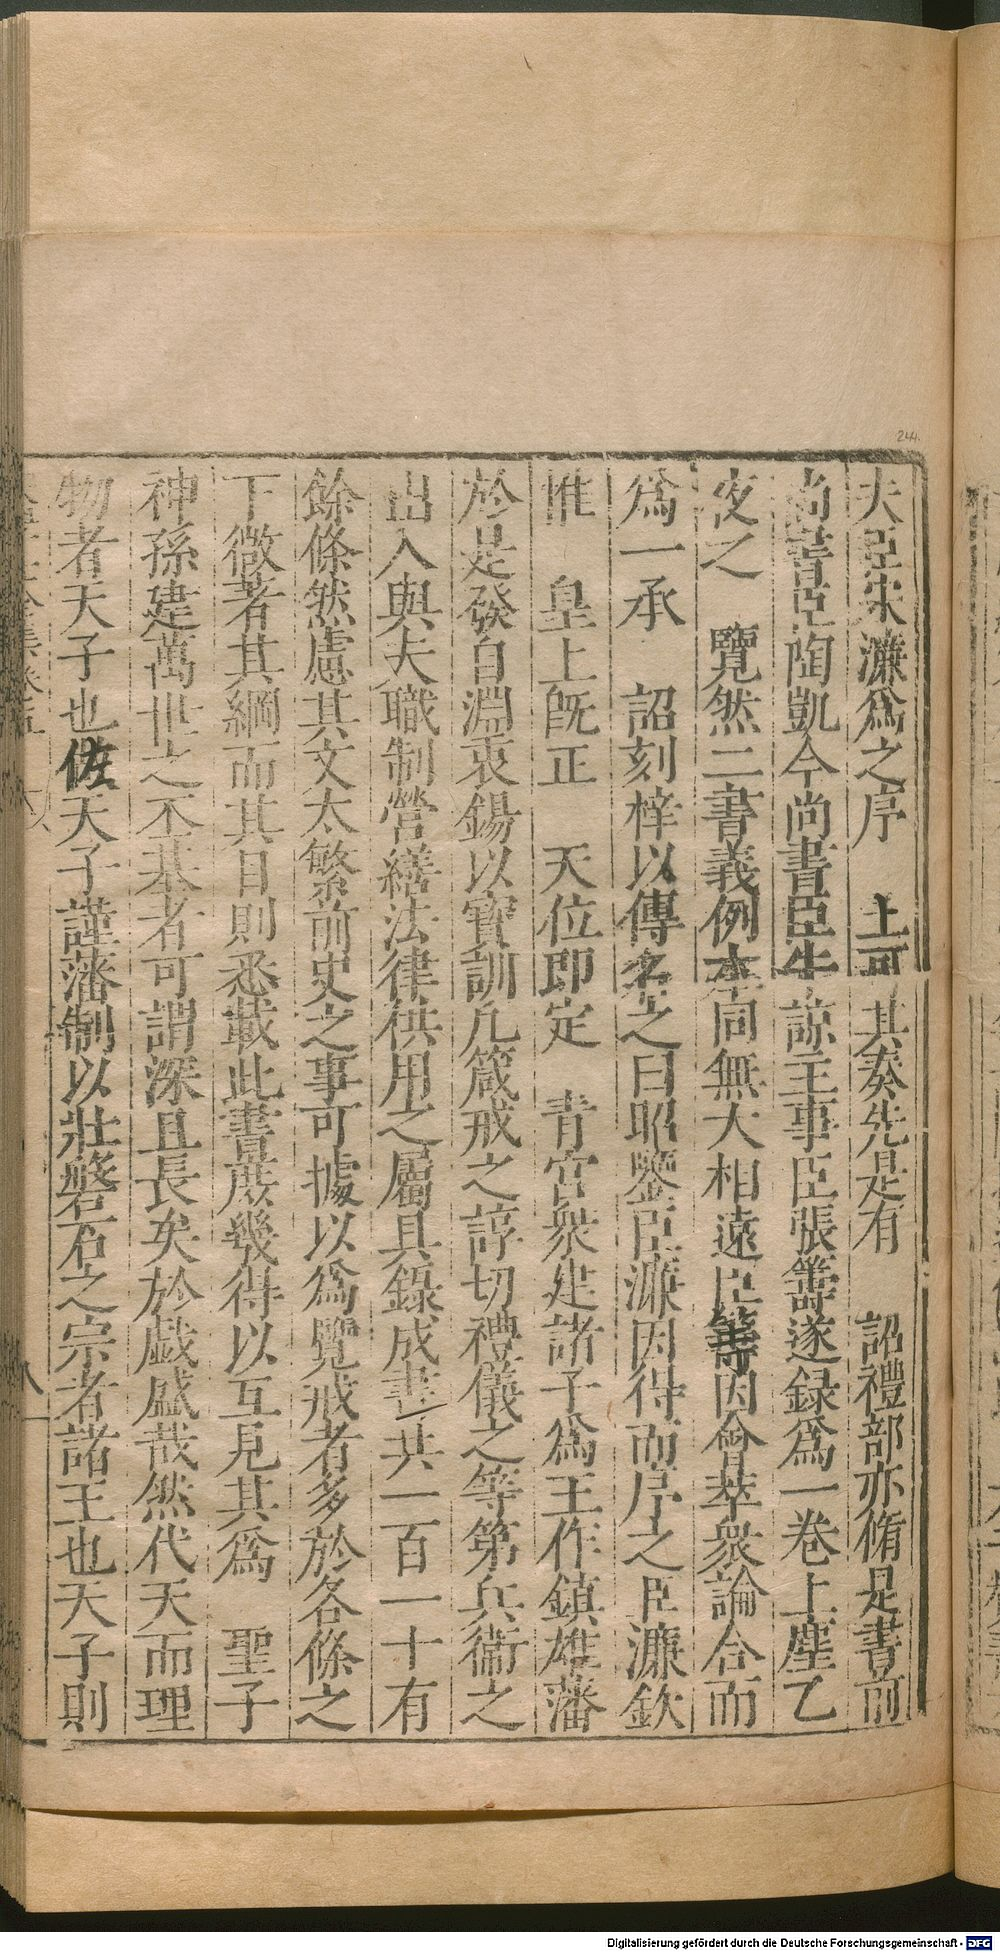 244
夫臣宋濂爲之序　上可其奏先是有　詔禮部亦脩是書前
尚書臣陶凱今尚書臣牛諒主事臣張籌遂録爲一卷上塵乙
夜之　覽然二書義例本同無大相遠臣等因會萃衆論合而
爲一承　詔刻梓以傳名之曰昭鑒臣濂因得而序之臣濂欽
惟　皇上旣正　天位即定　青宮衆建諸子爲王作鎮雄藩
於是發自淵衷錫以寶訓凡箴戒之諄切禮儀之等第兵衞之
出入與夫職制營繕法律供用之屬具錄成書共一百一十有
餘條然慮其文太繁前史之事可據以爲覽戒者多於各條之
下微著其綱而其目則悉載此書庶幾得以互見其爲　聖子
神孫建萬世之丕基者可謂深且長矣於戲盛哉然代天而理
物者天子也佐天子謹藩制以壯磐石之宗者諸王也天子則
Digitalisierung gefördert durch die Deutsche Forschungsgemeinschaft - DFG